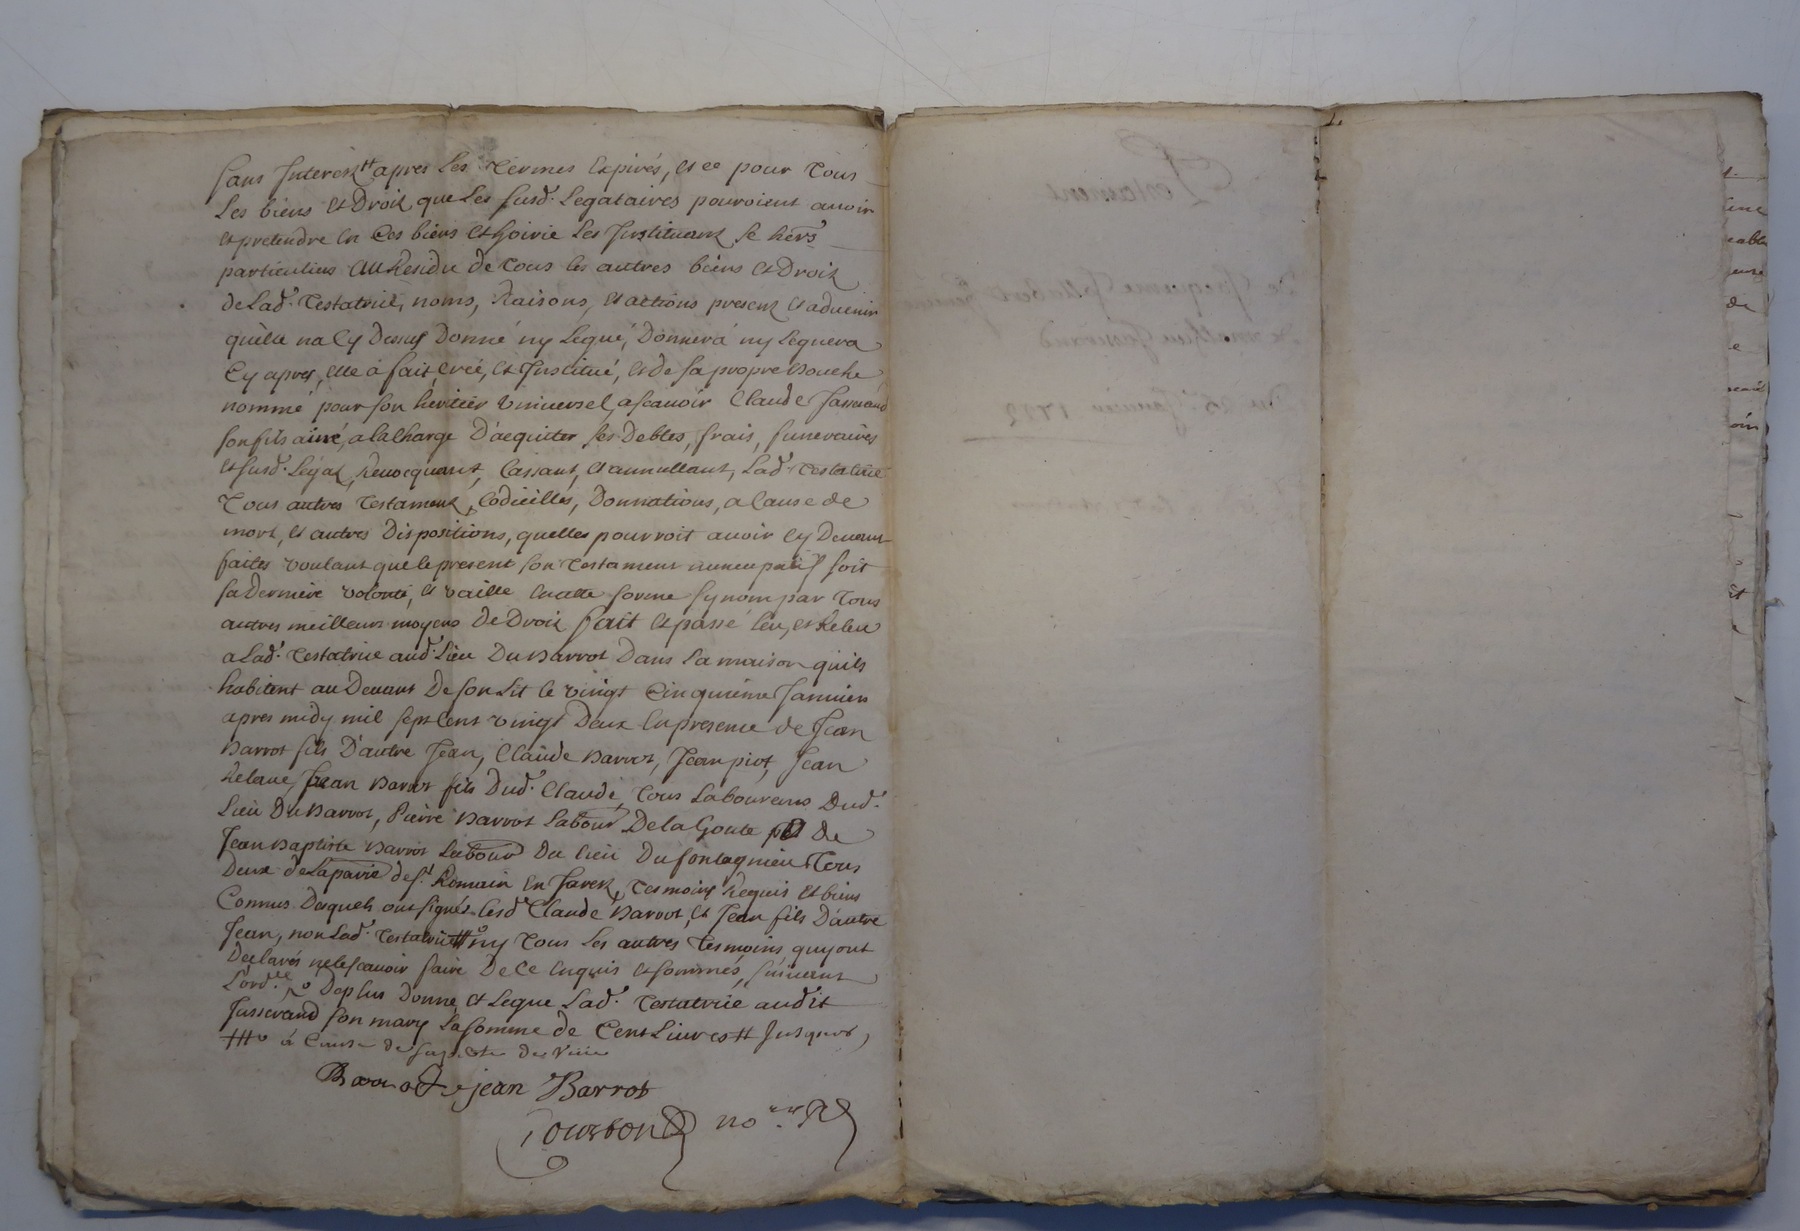 sans Interest## apres les termes Expirés, et ce pour tous
Les biens et Droit que les susd. Legataires pouroient avoir
et pretendre en ses biens et hoirie les Instituant se hers
particuliers Au Residu de tous les autres biens et Droit
de Lad. testatrice, noms, Raisons, et actions present et advenir
quelle na Cy Dessus Donné ny Legué, Donnera ny Leguera
Cy apres, elle à fait, créé, et Institué, et de sa propre bouche
nommé pour son heritier Universel, ascavoir Claude Jasserand
son fils ainé, a la Charge D'acquitter ses Debtes, frais, funeraires
et susd. Legat, Revocquant, Cassant, et annullant, Lad. testatrice
tous autres testament, Codicilles, Donnations, a Cause de
mort, et autres Dispositions, quelles pourroit avoir Cy Devant
faites voulant que le present son testament nuncupatif soit
sa Derniere volonté, et vaille en cette forme sy non par tous
autres meilleurs moyens De Droit fait et passé leu, et Releu
a Lad. testatrice aud. Lieu Du Barrot Dans la maison quils
habitent au Devant De son Lit le vingt Cinquième Janvier
apres midy mil sept Cent vingt Deux En presence de Jean
Barrot fils D'autre Jean, Claude Barrot, Jean piot, Jean
Relave, Jean Barrot fils Dud. Claude, tous Laboureurs Dud.
Lieu Du Barrot, Pierre Barrot Labour De la Goute et De
Jean Baptiste Barrot Labour Du lieu Du fontagnieu tous
Deux de La parre de St. Romain en Jarest, tesmoins Requis et biens
Connus Desquels ont signés lesd. Claude Barrot, et Jean fils D'autre
Jean, non Lad. testatrice ## ny tous les autres tesmoins, quy ont
Declarés ne le scavoir faire De Ce Enquis et sommés, suivant
L'ord.ce De plus Donne et Legue Lad. testatrice audit
Jasserand son mary la somme de Cent Livres # Jusques
## à Cause de sa perte de Veüe
Barrot jean Barrot
Tourbon no.re R
Testament
De Jacqueme femme
De mathieu Jasserand
Du 25e Janvier 1722